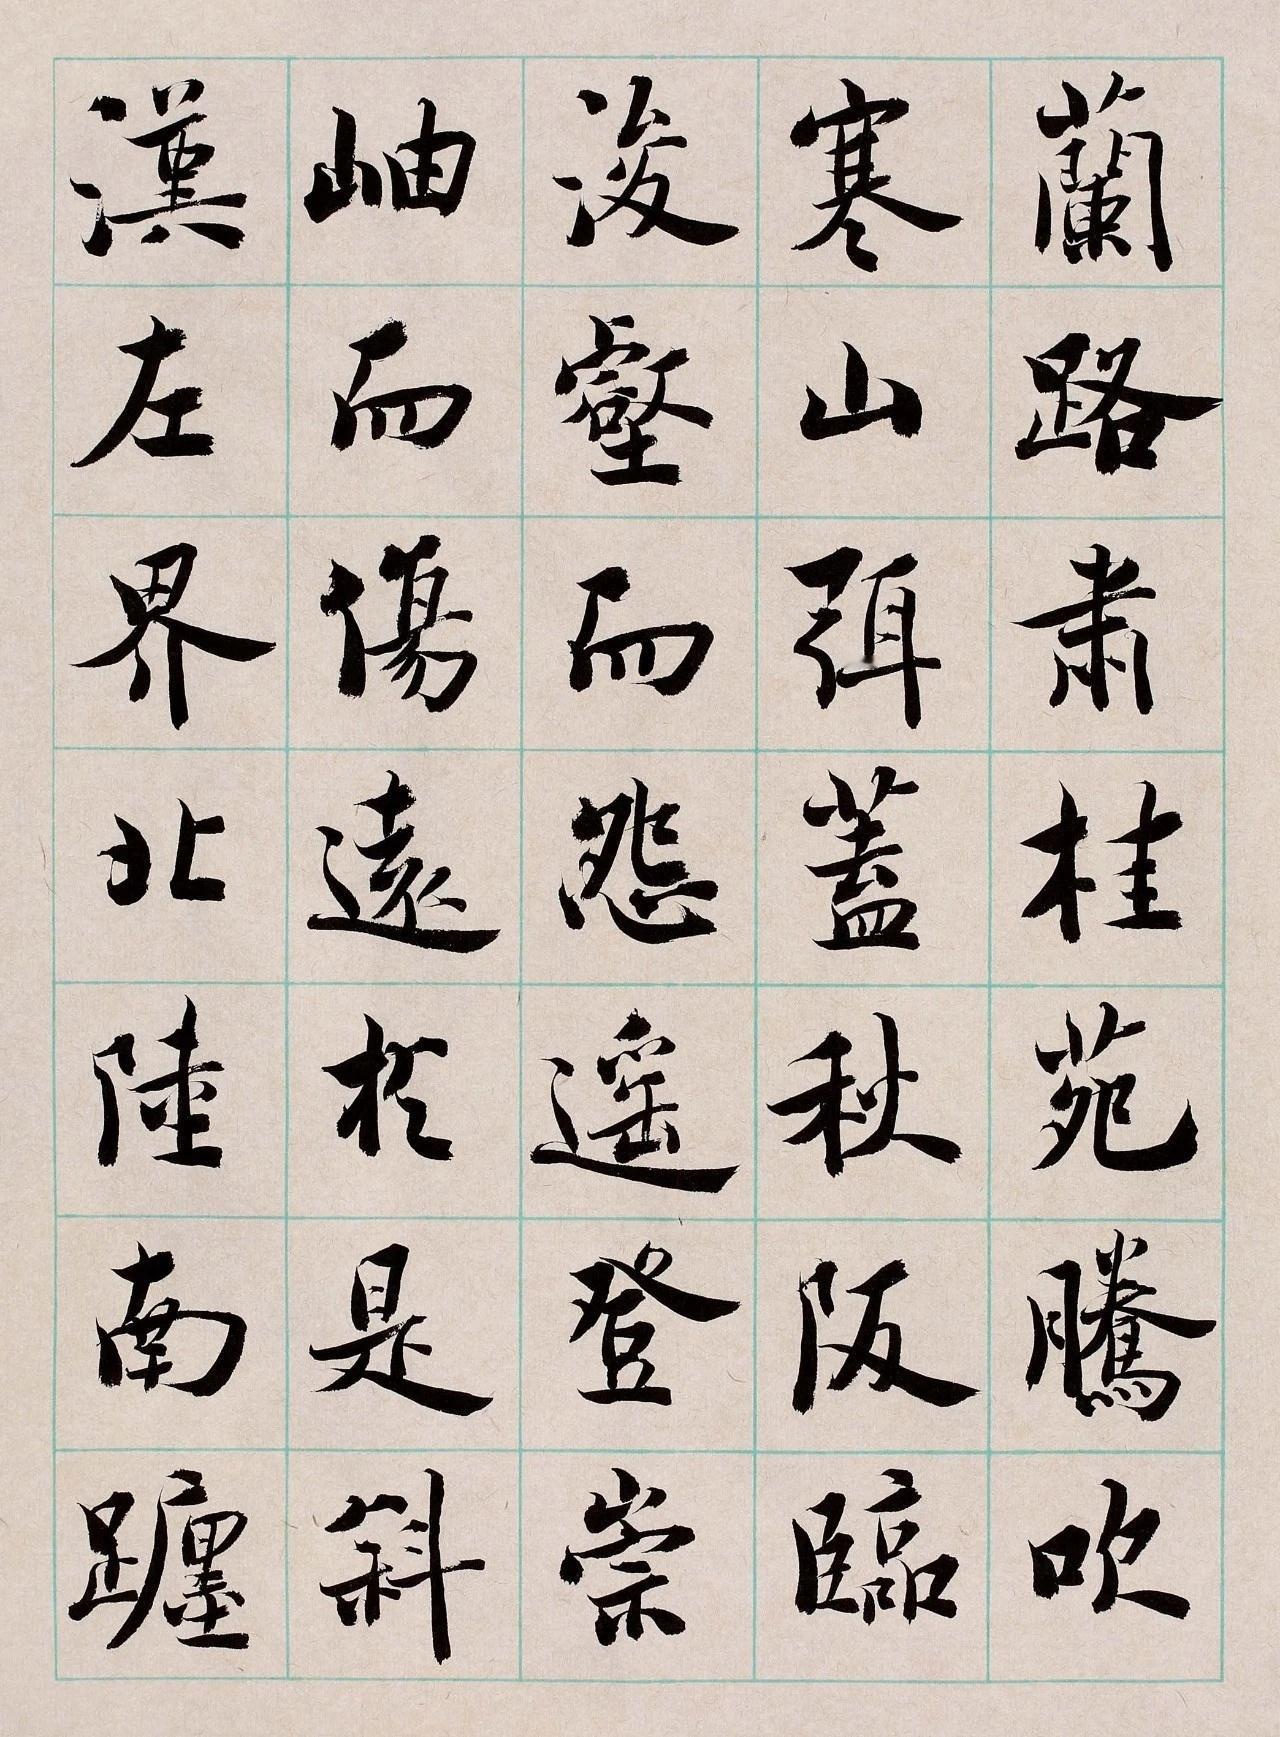 蘭路肅桂苑騰吹
寒山弭蓋秋阪臨
浚壑而怨遥登崇
岫而傷遠於是斜
漢左界北陸南躔